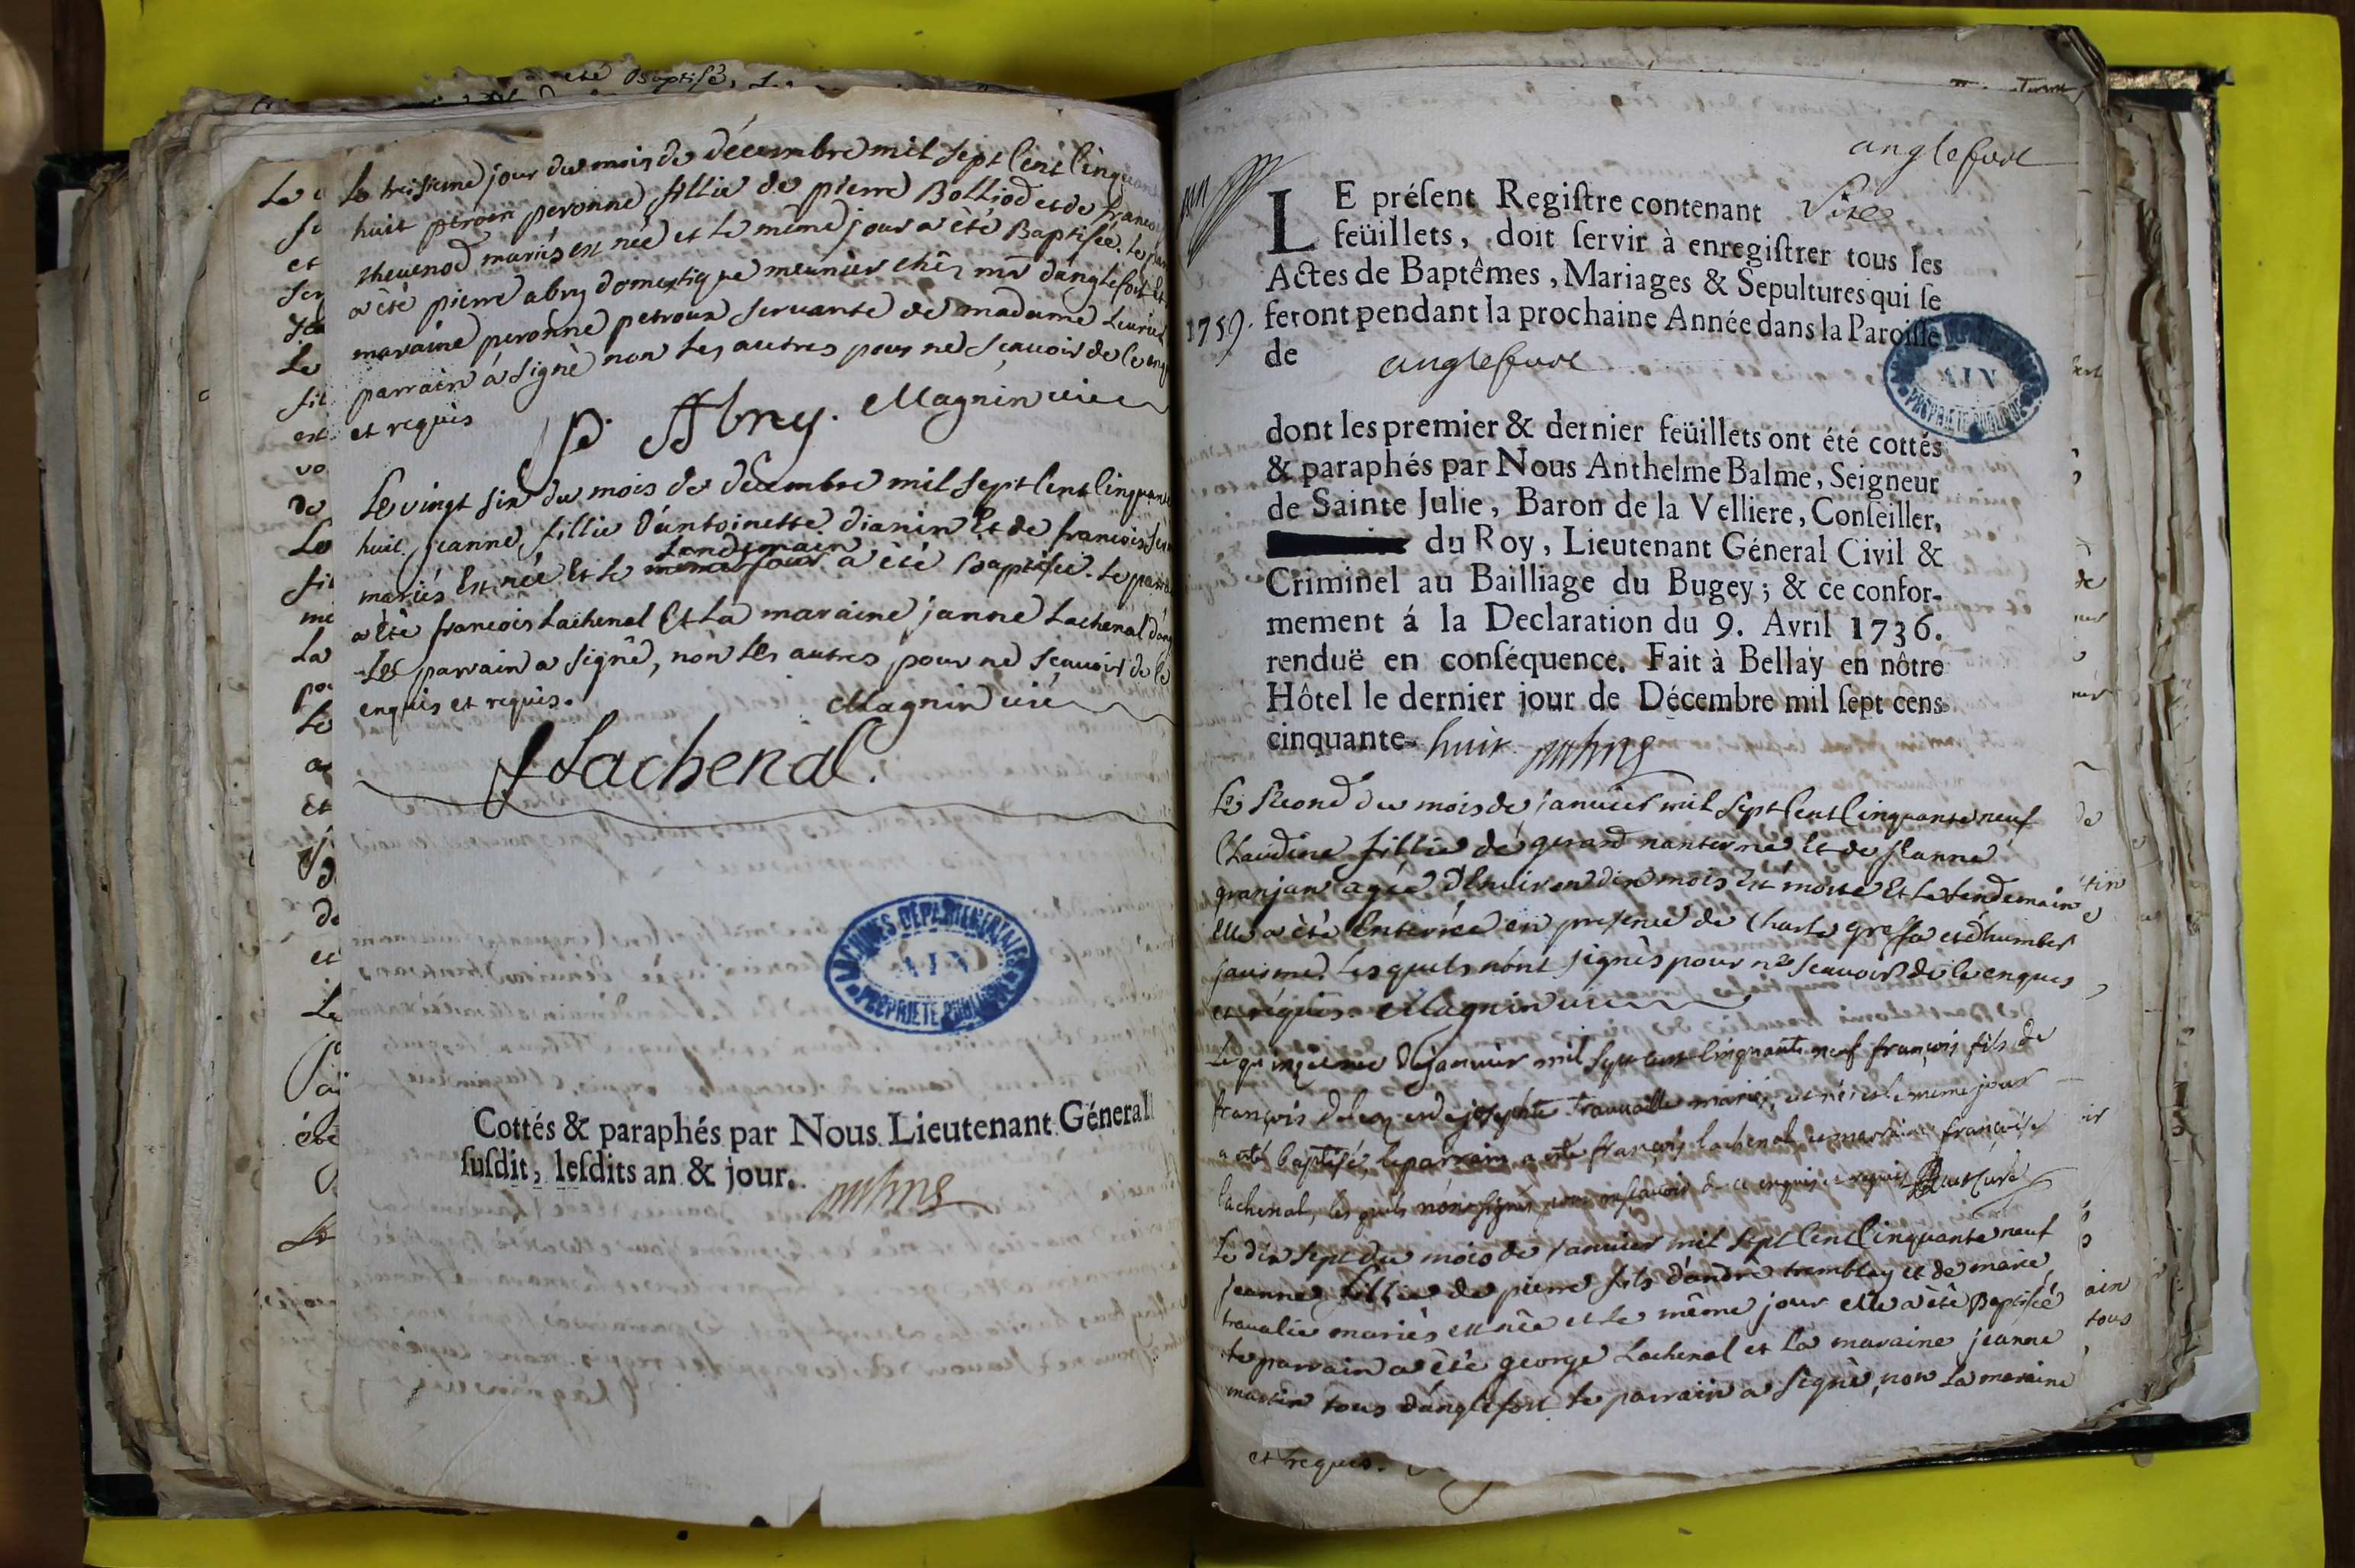 Le treisieme jour du mois de décembre mil sept Cent Cinquan
huit peronne fillie de pierre Bolliod et de
thevenod mariés est née et le même jour a été Baptisée. le
a été pierre abry domestique meunier chéz mr d'anglefort Et
maraine peronne petroux servante de madame
parrain a signé non les autres pour ne sçavoir de ce
et requis
p. Abry. Magnin curé
Le vingt six du mois de décembre mil sept Cent Cinquan
huit jeanne fillie d'antoinette dianin Et de francois
lendemain
mariés Est née Et le a été Baptisée. le parra
a été francois Lachenal Et La maraine janne Lachenal
Le parrain a signé, non les autres pour ne sçavoir de ce
enquis et requis. Magnin curé
f Lachenal.
ARCHIVES DÉPARTEMENTALES
AIN
PROPRIÉTÉ PUBLIQUE
Cottés & paraphés par Nous Lieutenant Géneral
ſuſdit, leſdits an & jour.
anglefort
LE préſent Regiſtre contenant Sixe
feüillets, doit ſervir à enregiſtrer tous les
Actes de Baptêmes, Mariages & Sepultures qui ſe
1759. feront pendant la prochaine Année dans la Paroiſſe
de anglefort
AIN
PROPRIÉTÉ PUBLIQUE
dont les premier & dernier feüillets ont été cottés
& paraphés par Nous Anthelme Balme, Seigneur
de Sainte Julie, Baron de la Velliere, Conſeiller,
du Roy, Lieutenant Géneral Civil &
Criminel au Bailliage du Bugey; & ce confor-
mement á la Declaration du 9. Avril 1736.
renduë en conſéquence. Fait à Bellay en nôtre
Hôtel le dernier jour de Décembre mil ſept cens
cinquante- huit
Le second du mois de janvier mil sept Cent Cinquante neuf
Claudine fillie de gerard nanterme Et de jeanne
granjan agée d'Environ dix mois Est morte Et Le lendemain
elle a été Enterrée en presence de Charle et d'humber
jausme Lesquels n'ont signés pour ne sçavoir de ce enquis
et réquis. Magnin curé
Le quinzieme de janvier mil sept cent cinquante neuf françois fils de
françois et de josephte travaille mariés, est né et le meme jour
a été baptisé, le parrain a été françois lachenal la marraine françoise
lachenal, lesquels n'ont signés pour ne sçavoir de ce enquis et requis curé
Le dix sept du mois de janvier mil sept Cent Cinquante neuf
jeanne fillie de pierre fils d'andré tremblay et de marie
travalie mariés est née et le même jour elle a été Baptisée
le parrain a été george Lachenal et la maraine jeanne
martin tous d'anglefort le parrain a signé, non la maraine
et requis.